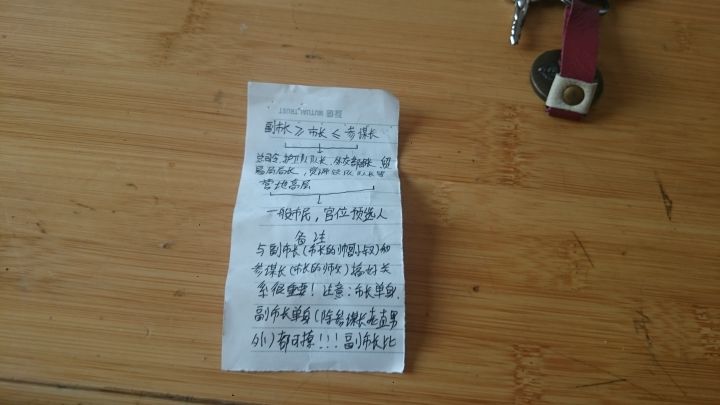 互信 MUTUAL TRUST
副市长 ≥ 市长 ≤ 参谋长
总司令, 护卫队队长, 外交部部长, 贸
易局局长, 资源队队长等
营地高层
一般市民, 官位预选人
备注
与副市长(市长的师叔)和
参谋长(市长的师父)搞好关
系很重要! 注意: 市长单身,
副市长单身(除参谋长老直男
外)都可撩!!! 副市长比